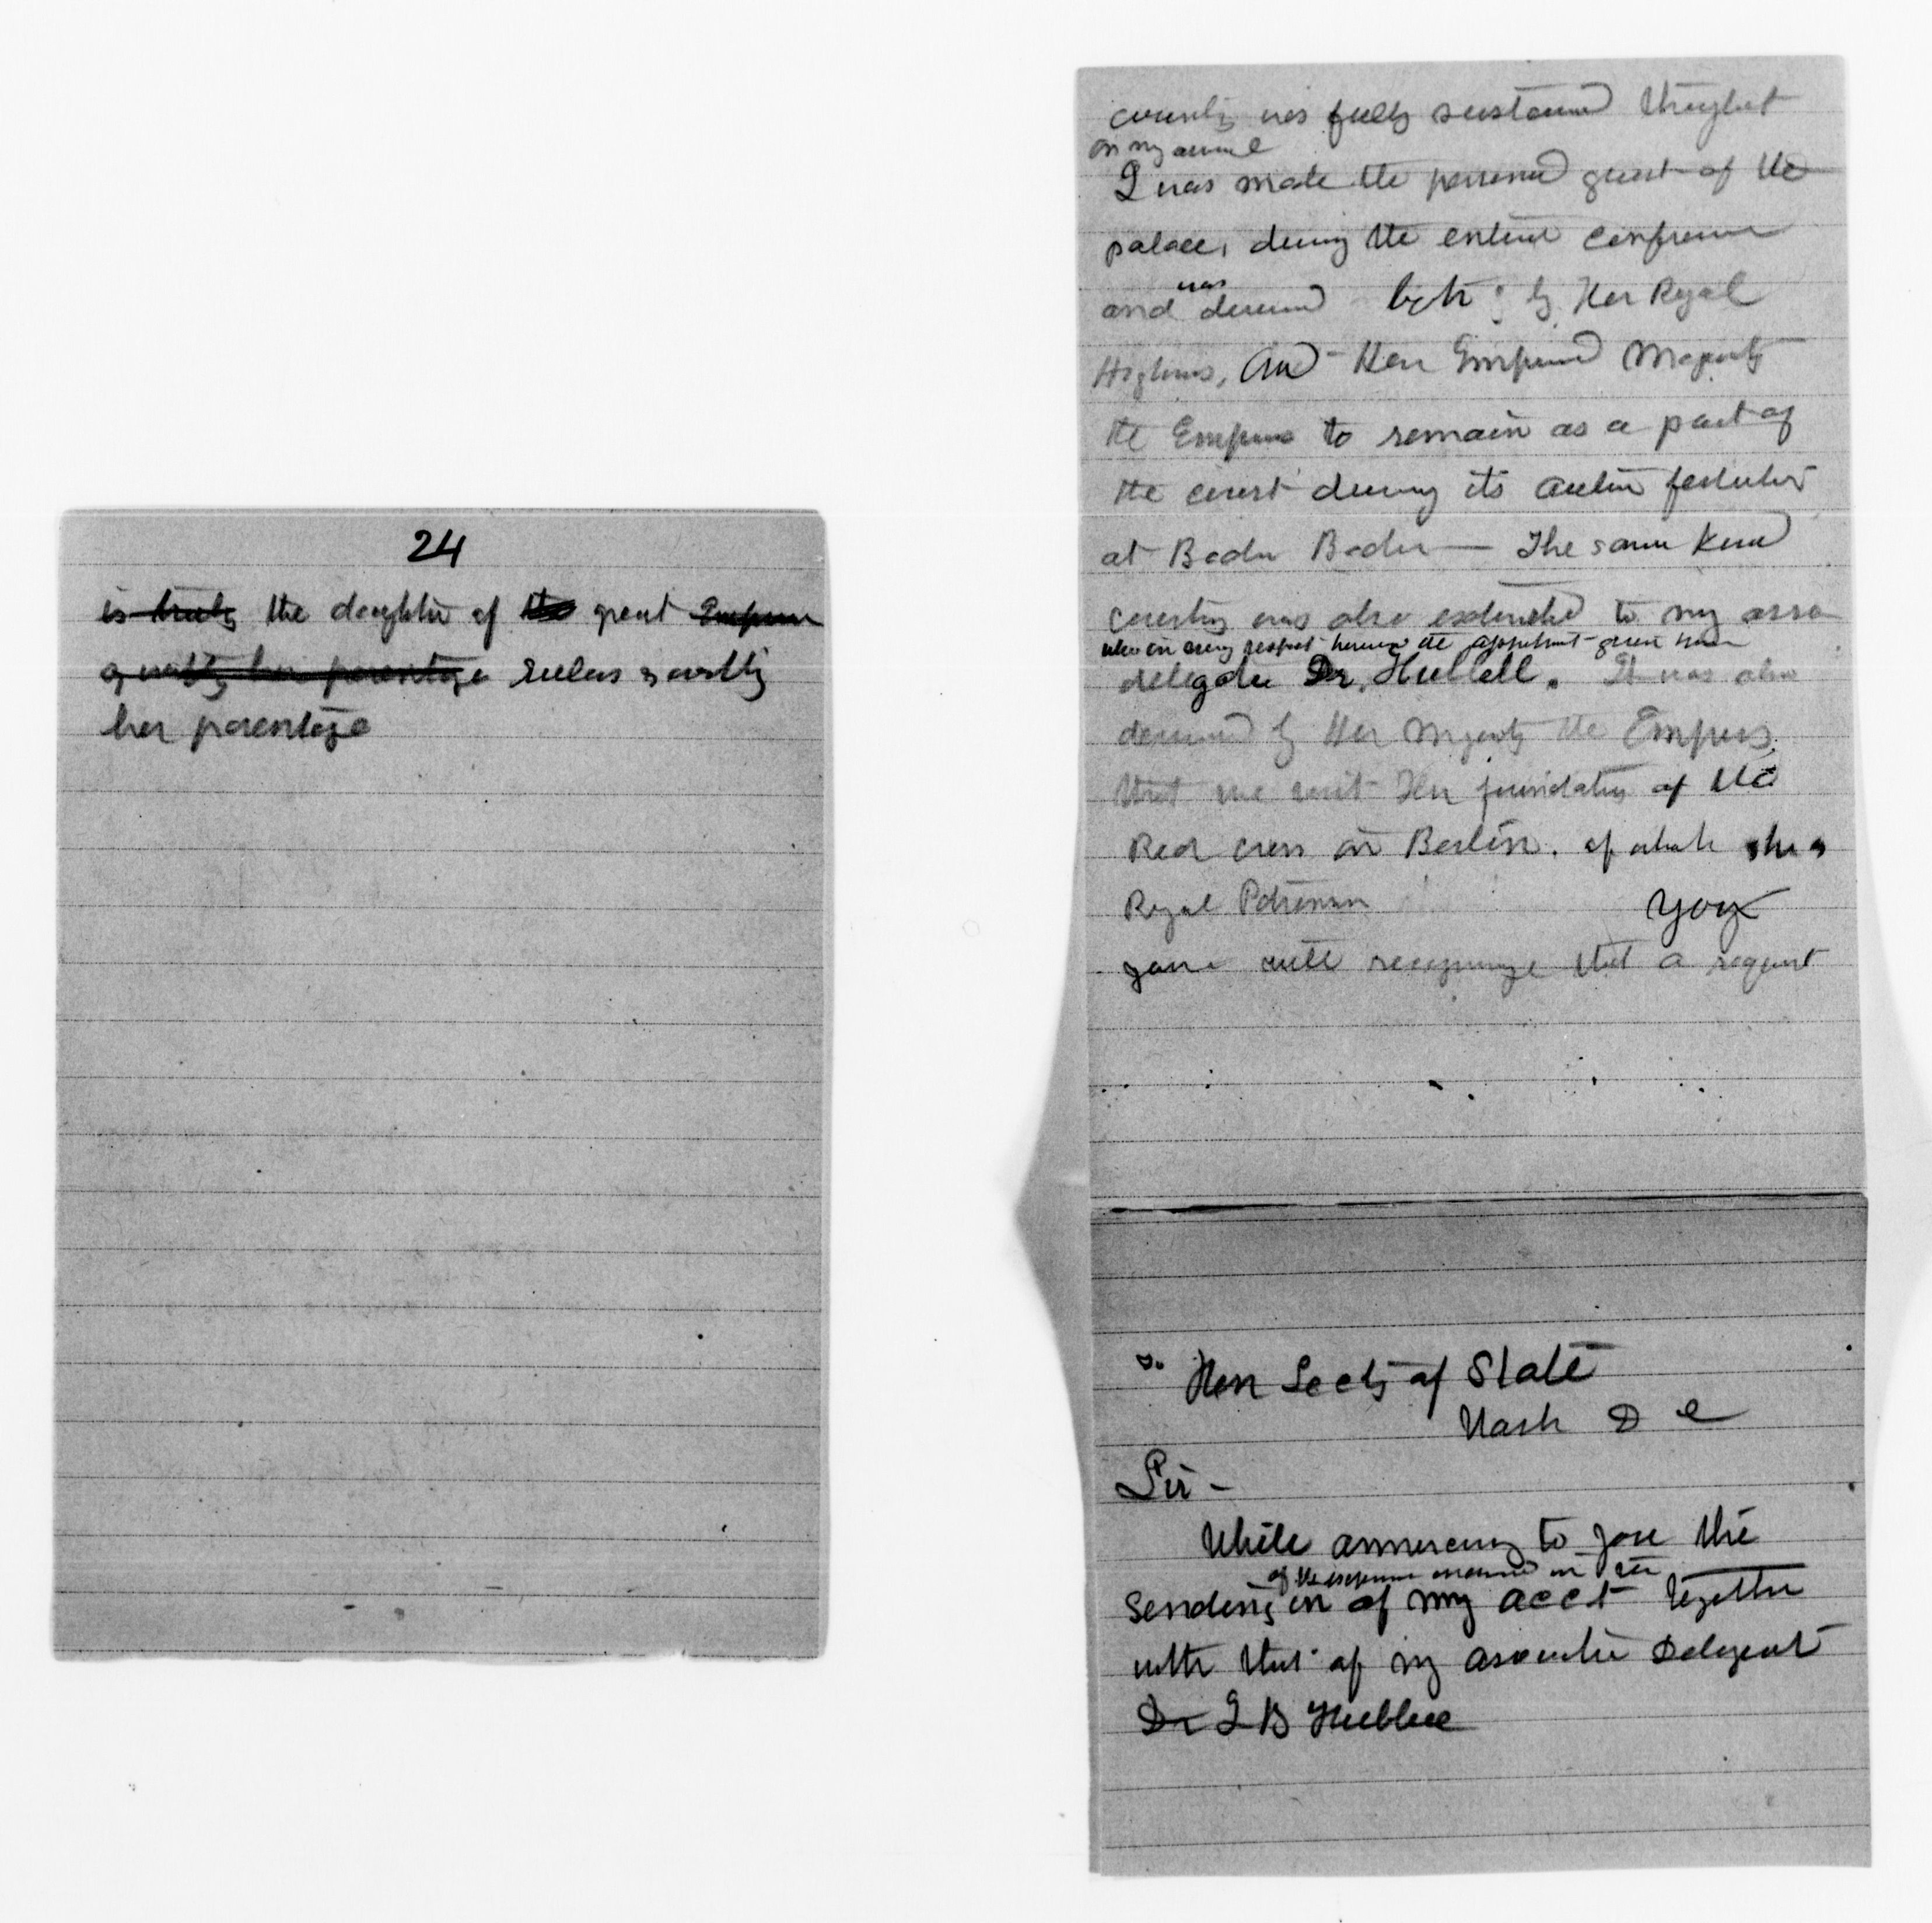 24
is truly the daughter of the great Emperor
& worthy her parentage rulers & worthy
her parentage
courtesy was fully sustained throughout
on my arrival
I was made the personal guest of the
palace, during the entire conference
was
and desired both by Her Royal
Highness, and Her Imperial Majesty
the Empress to remain as a part of
the court during its autumn festivities
at Baden Baden — The same kind
courtesy was also extended to my asso
who in every respect honored the appointment given him
delegate Dr. Hubbell. It was also
desired by Her Majesty the Empress
that we visit Her foundation of the
Red cross in Berlin. of which she is
Royal Patroness
You
you will recognize that a request
To Hon Secty of State
Wash D C
Sir -
While announcing to you the
of the expense incurred
sending in of my acct together
with that of my associate Delegate
Dr J B Hubbell